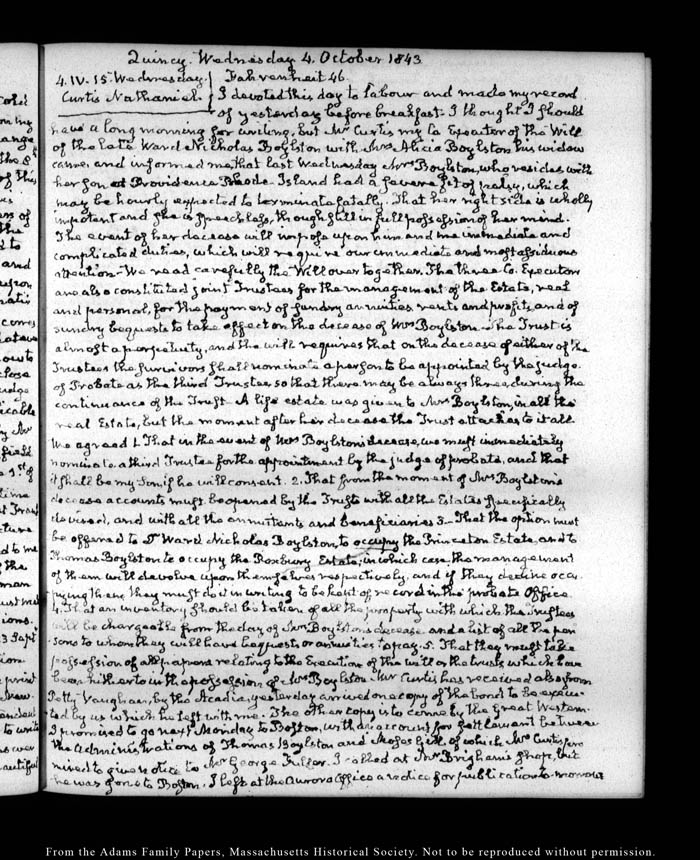 Quincy. Wednesday 4. October 1843
4. IV. 15. Wednesday. Fahrenheit 46.
Curtis Nathaniel. I devoted this day to labour and made my record
of yesterday before breakfast. I thought I should
have a long morning for writing, but Mr Curtis my Co Executor of the Will
of the late Ward Nicholas Boylston with Mrs Alicia Boylston his widow
came and informed me that last Wednesday Mrs Boylston, who resides with
her son at Providence Rhode-Island had a severe fit of palsy, which
may be hourly expected to terminate fatally. That her right side is wholly
impotent and she is speechless, though still in full possession of her mind.
The event of her decease will impose upon him and me immediate and
complicated duties, which will require our immediate and most assiduous
attention. We read carefully the Will over together. The three Co. Executors
are also constituted joint Trustees for the management of the Estate, real
and personal, for the payment of sundry annuities rents and profits, and of
sundry bequests to take effect on the decease of Mrs Boylston. The Trust is
almost a perpetuity, and the will requires that on the decease of either of the
Trustees the survivors shall nominate a person to be appointed by the judge
of Probate as the third Trustee, so that there may be always three, during the
continuance of the Trust. A life estate was given to Mrs Boylston, in all the
real Estate, but the moment after her decease the Trust attaches to it all.
We agreed 1. That in the event of Mrs Boylston's decease, we must immediately
nominate a third Trustee for the appointment by the judge of probate, and that
it shall be my Son if he will consent. 2. That from the moment of Mrs Boylston's
decease accounts must be opened by the Trusts with all the Estates specifically
devised, and with all the annuitants and beneficiaries 3. That the option must
be offered to Dr Ward Nicholas Boylston, to occupy the Princeton Estate, and to
Thomas Boylston to occupy the Roxbury Estate; in which case, the management
of them will devolve upon themselves respectively, and if they decline occu-
pying them, they must do it in writing to be kept of record in the probate office.
4. That an inventory should be taken of all the property with which the Trustees
will be chargeable from the day of Mrs Boylston's decease and a list of all the per
sons to whom they will have bequests or annuities to pay. 5. That they must take
possession of all papers relating to the Execution of the will or the trusts, which have
been hitherto in the possession of Mrs Boylston Mr Curtis has received also from
Petty Vaughan, by the Acadia, yesterday arrived one copy of the bond to be execu-
ted by us which he left with me. The other copy is to come by the Great Western.
I promised to go next Monday to Boston, with an account for between
the Administrations of Thomas Boylston and Moses Gill, of which Mr Curtis pro
mised to give notice to Mr George Fuller. I called at Mr Brigham's shop, but
he was gone to Boston. I left at the Aurora Office a notice for publication to-morrow
From the Adams Family Papers, Massachusetts Historical Society. Not to be reproduced without permission.